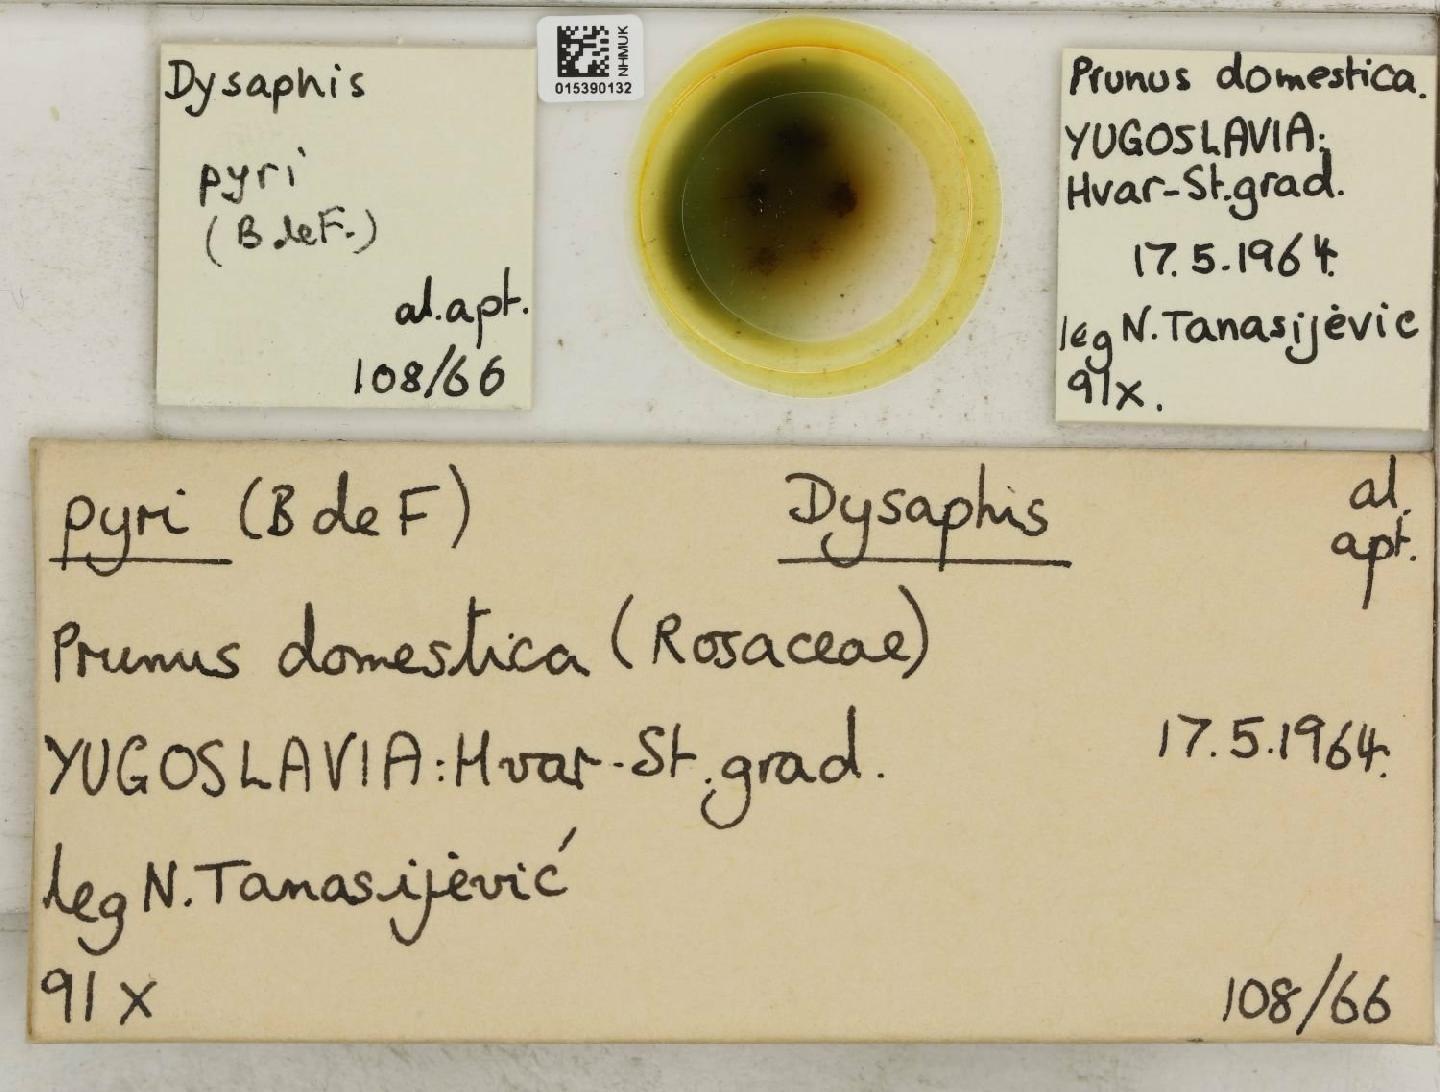 Dysaphis
pyri
(B deF.)
al.apt.
108/66
NHMUK
015390132
Prunus domestica.
YUGOSLAVIA:
Hvar-St.grad.
17.5.1964.
leg N.Tanasijėvic
91x.
pyri (B de F) Dysaphis al.
apt.
Prunus domestica (Rosaceae)
YUGOSLAVIA:Hvar-St.grad. 17.5.1964.
leg N.Tanasijėvić
91 x 108/66